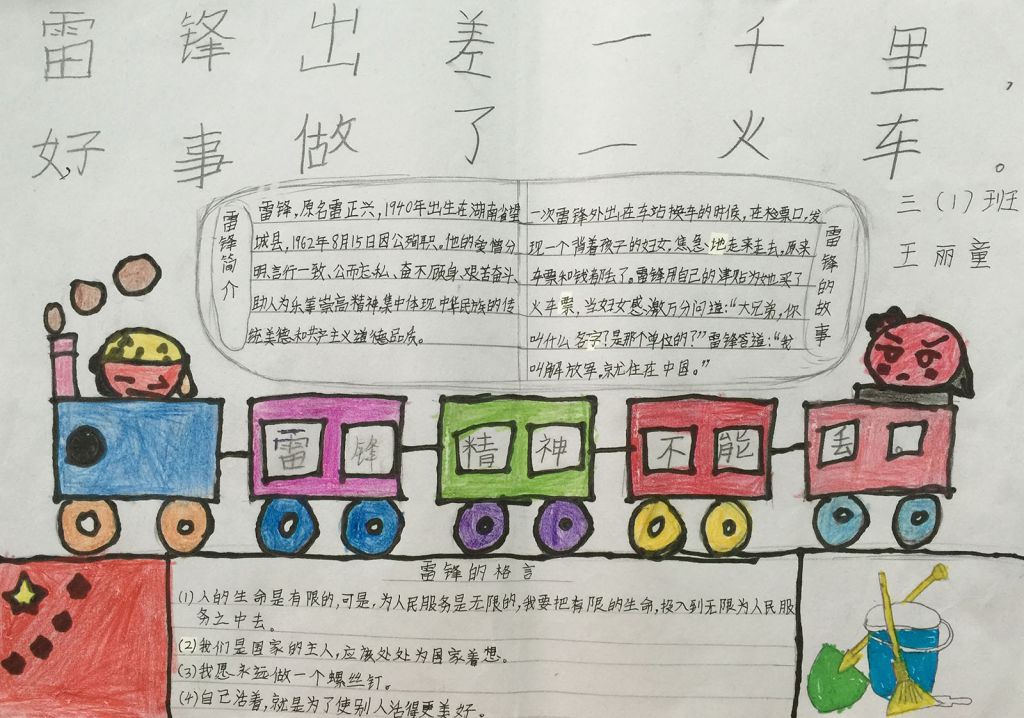 雷锋出差一千里，
好事做了一火车。
三（1）班
王丽童
雷锋简介
雷锋，原名雷正兴，1940年出生在湖南省望
城县，1962年8月15日因公殉职。他的爱憎分
明、言行一致、公而忘私、奋不顾身、艰苦奋斗、
助人为乐等崇高精神集中体现中华民族的传
统美德和共产主义道德品质。
雷锋的故事
一次雷锋外出在车站换车的时候，在检票口，发
现一个背着孩子的妇女，焦急地走来走去，原来
车票和钱都丢了。雷锋用自己的津贴为她买了
火车票，当妇女感激万分问道：“大兄弟，你
叫什么名字？是那个单位的？”雷锋答道：“我
叫解放军，就住在中国。”
雷锋精神不能丢。
雷锋的格言
(1)人的生命是有限的，可是，为人民服务是无限的，我要把有限的生命，投入到无限为人民服
务之中去。
(2)我们是国家的主人，应该处处为国家着想。
(3)我愿永远做一个螺丝钉。
(4)自己活着，就是为了使别人活得更美好。